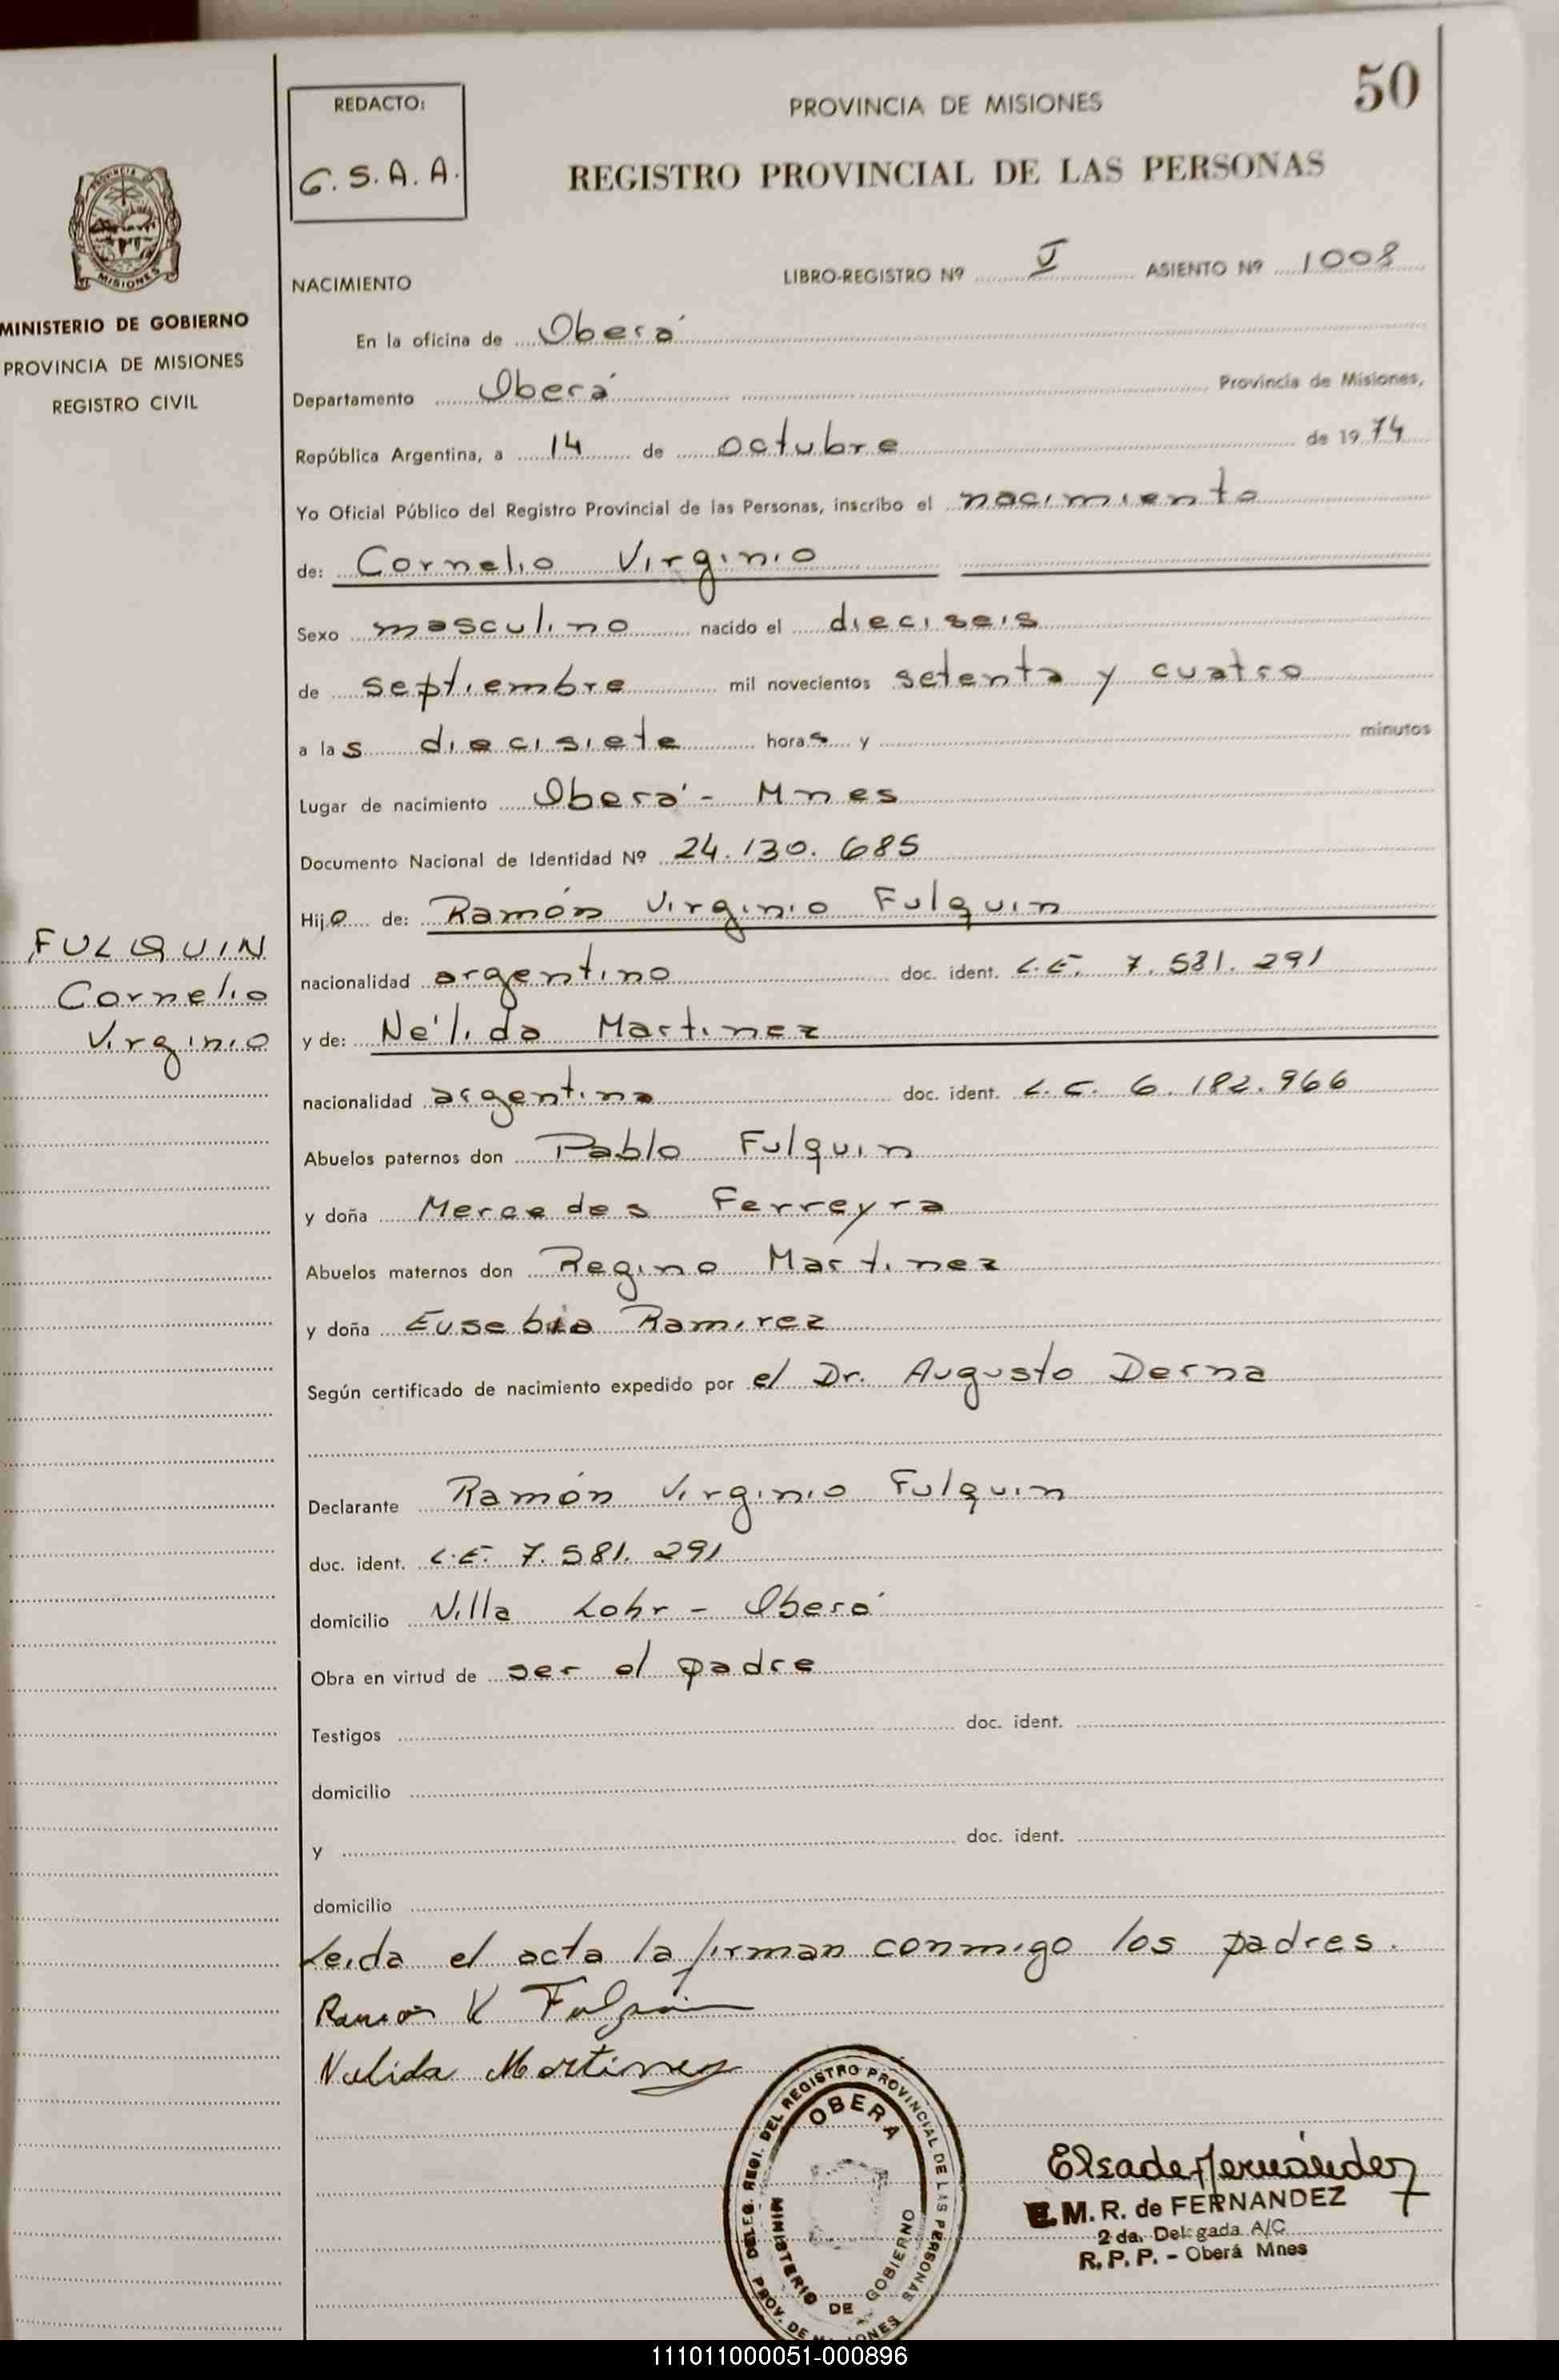 50
REDACTO:
G. S. A. A.
PROVINCIA DE MISIONES
REGISTRO PROVINCIAL DE LAS PERSONAS
PROVINCIA
MISIONES
MINISTERIO DE GOBIERNO
PROVINCIA DE MISIONES
REGISTRO CIVIL
NACIMIENTO
LIBRO-REGISTRO Nº V ASIENTO Nº 1008
En la oficina de Oberá
Departamento Oberá Provincia de Misiones,
República Argentina, a 14 de octubre de 1974
Yo Oficial Público del Registro Provincial de las Personas, inscribo el nacimiento
de: Cornelio Virginio
Sexo masculino nacido el dieciseis
de septiembre mil novecientos setenta y cuatro
a las diecisiete horas y minutos
Lugar de nacimiento Oberá - Mnes
Documento Nacional de Identidad Nº 24.130.685
Hijo de: Ramón Virginio Fulquin
FULQUIN
Cornelio
Virginio
nacionalidad argentino doc. ident. L.E. 7.581.291
y de: Nélida Martinez
nacionalidad argentina doc. ident. L.C. 6.182.966
Abuelos paternos don Pablo Fulquin
y doña Mercedes Ferreyra
Abuelos maternos don Regino Martinez
y doña Eusebia Ramirez
Según certificado de nacimiento expedido por el Dr. Augusto Derna
Declarante Ramón Virginio Fulquin
doc. ident. L.E. 7.581.291
domicilio Villa Lohr - Oberá
Obra en virtud de ser el padre
Testigos doc. ident.
domicilio
y doc. ident.
domicilio
Leida el acta la firman conmigo los padres.
Ramon V Fulquin
Nelida Martinez
DELEG. REGI. DEL REGISTRO PROVINCIAL DE LAS PERSONAS
OBERA
MINISTERIO DE GOBIERNO
PROV. DE MISIONES
Elsa de Fernández
E. M. R. de FERNANDEZ
2 da. Delegada A/C
R. P. P. - Oberá Mnes
111011000051-000896